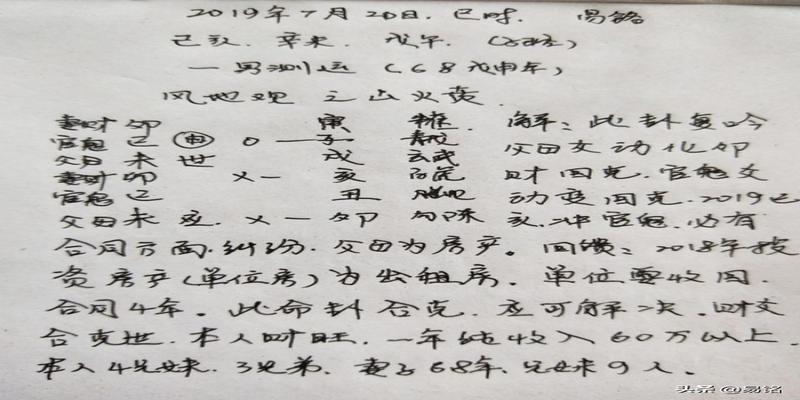 2019年7月20日.巳时. 易铭
己亥.辛未.戊午.(子丑空)
一男测运(68戊申年)
风地观之山火贲
妻财卯 寅 解:此卦复吟
官鬼巳 申 O 子 青龙 父母爻动化卯
父母未世 戌 玄武 财回克.官鬼爻
妻财卯 X一 亥 白虎 动变回克.2019己
官鬼巳 丑 亥.冲官鬼.必有
父母未应.X一卯 勾陈
合同方面.纠纷.父母为房产。回馈:2018年投
资房产(单位房)为出租房.单位要收回.
合同4年。此命卦合克.应可解决.财爻
合克世.本人财旺.一年纯收入60万以上.
本人4兄妹.3兄弟.妻子68年.兄妹9人.
头条@易铭